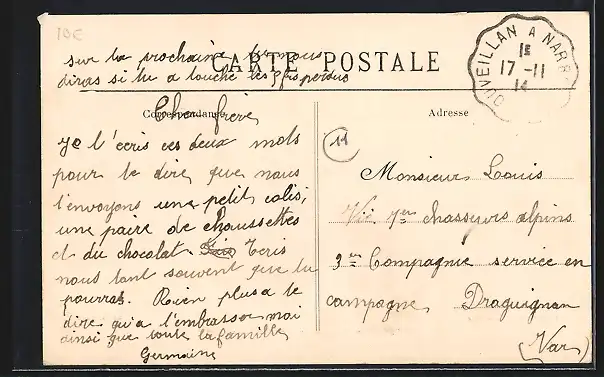 10E
sur la prochaine tu nous
CARTE POSTALE
diras si tu a touché les 9 frs perdus
OUVEILLAN A NARB
1E
17 -11
14
Correspondance
Adresse
Cher frère
Je t'écris ces deux mots
pour te dire que nous
t'envoyons une petit colis,
une paire de chaussettes
et du chocolat. Teris
nous tant souvent que tu
pourras. Rien plus a te
dire qu'a t'embrasser moi
ainsi que toute la famille
Germaine
11
Monsieur Louis
Vié 7em chasseurs alpins
3em Compagnie service en
campagne Draguignan
(Var)